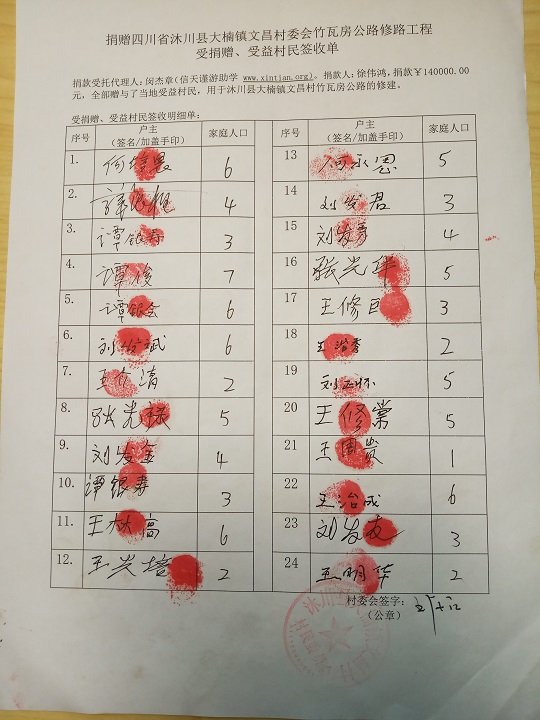 捐赠四川省沐川县大楠镇文昌村委会竹瓦房公路修路工程
受捐赠、受益村民签收单
捐款受托代理人：闵杰章(信天谨游助学 www.xintian.org)。捐款人：徐伟鸿，捐款￥140000.00
元，全部赠与了当地受益村民，用于沐川县大楠镇文昌村竹瓦房公路的修建。
受捐赠、受益村民签收明细单：
序号 户主 家庭人口
(签名/加盖手印)
1. 6
2. 4
3. 谭银寿 3
4. 谭 7
5. 谭银会 6
6. 刘 斌 6
7. 王 清 2
8. 张光禄 5
9. 刘发金 4
10. 谭银寿 3
11. 王 高 6
12. 王兴培 2
序号 户主 家庭人口
(签名/加盖手印)
13 何永恩 5
14 刘发君 3
15 刘发 4
16 张光 5
17 王修 3
18 王治 2
19 刘正怀 5
20 王修棠 5
21 王国贵 1
22 王治成 6
23 刘发友 3
24 王明华 2
村委会签字：
(公章)